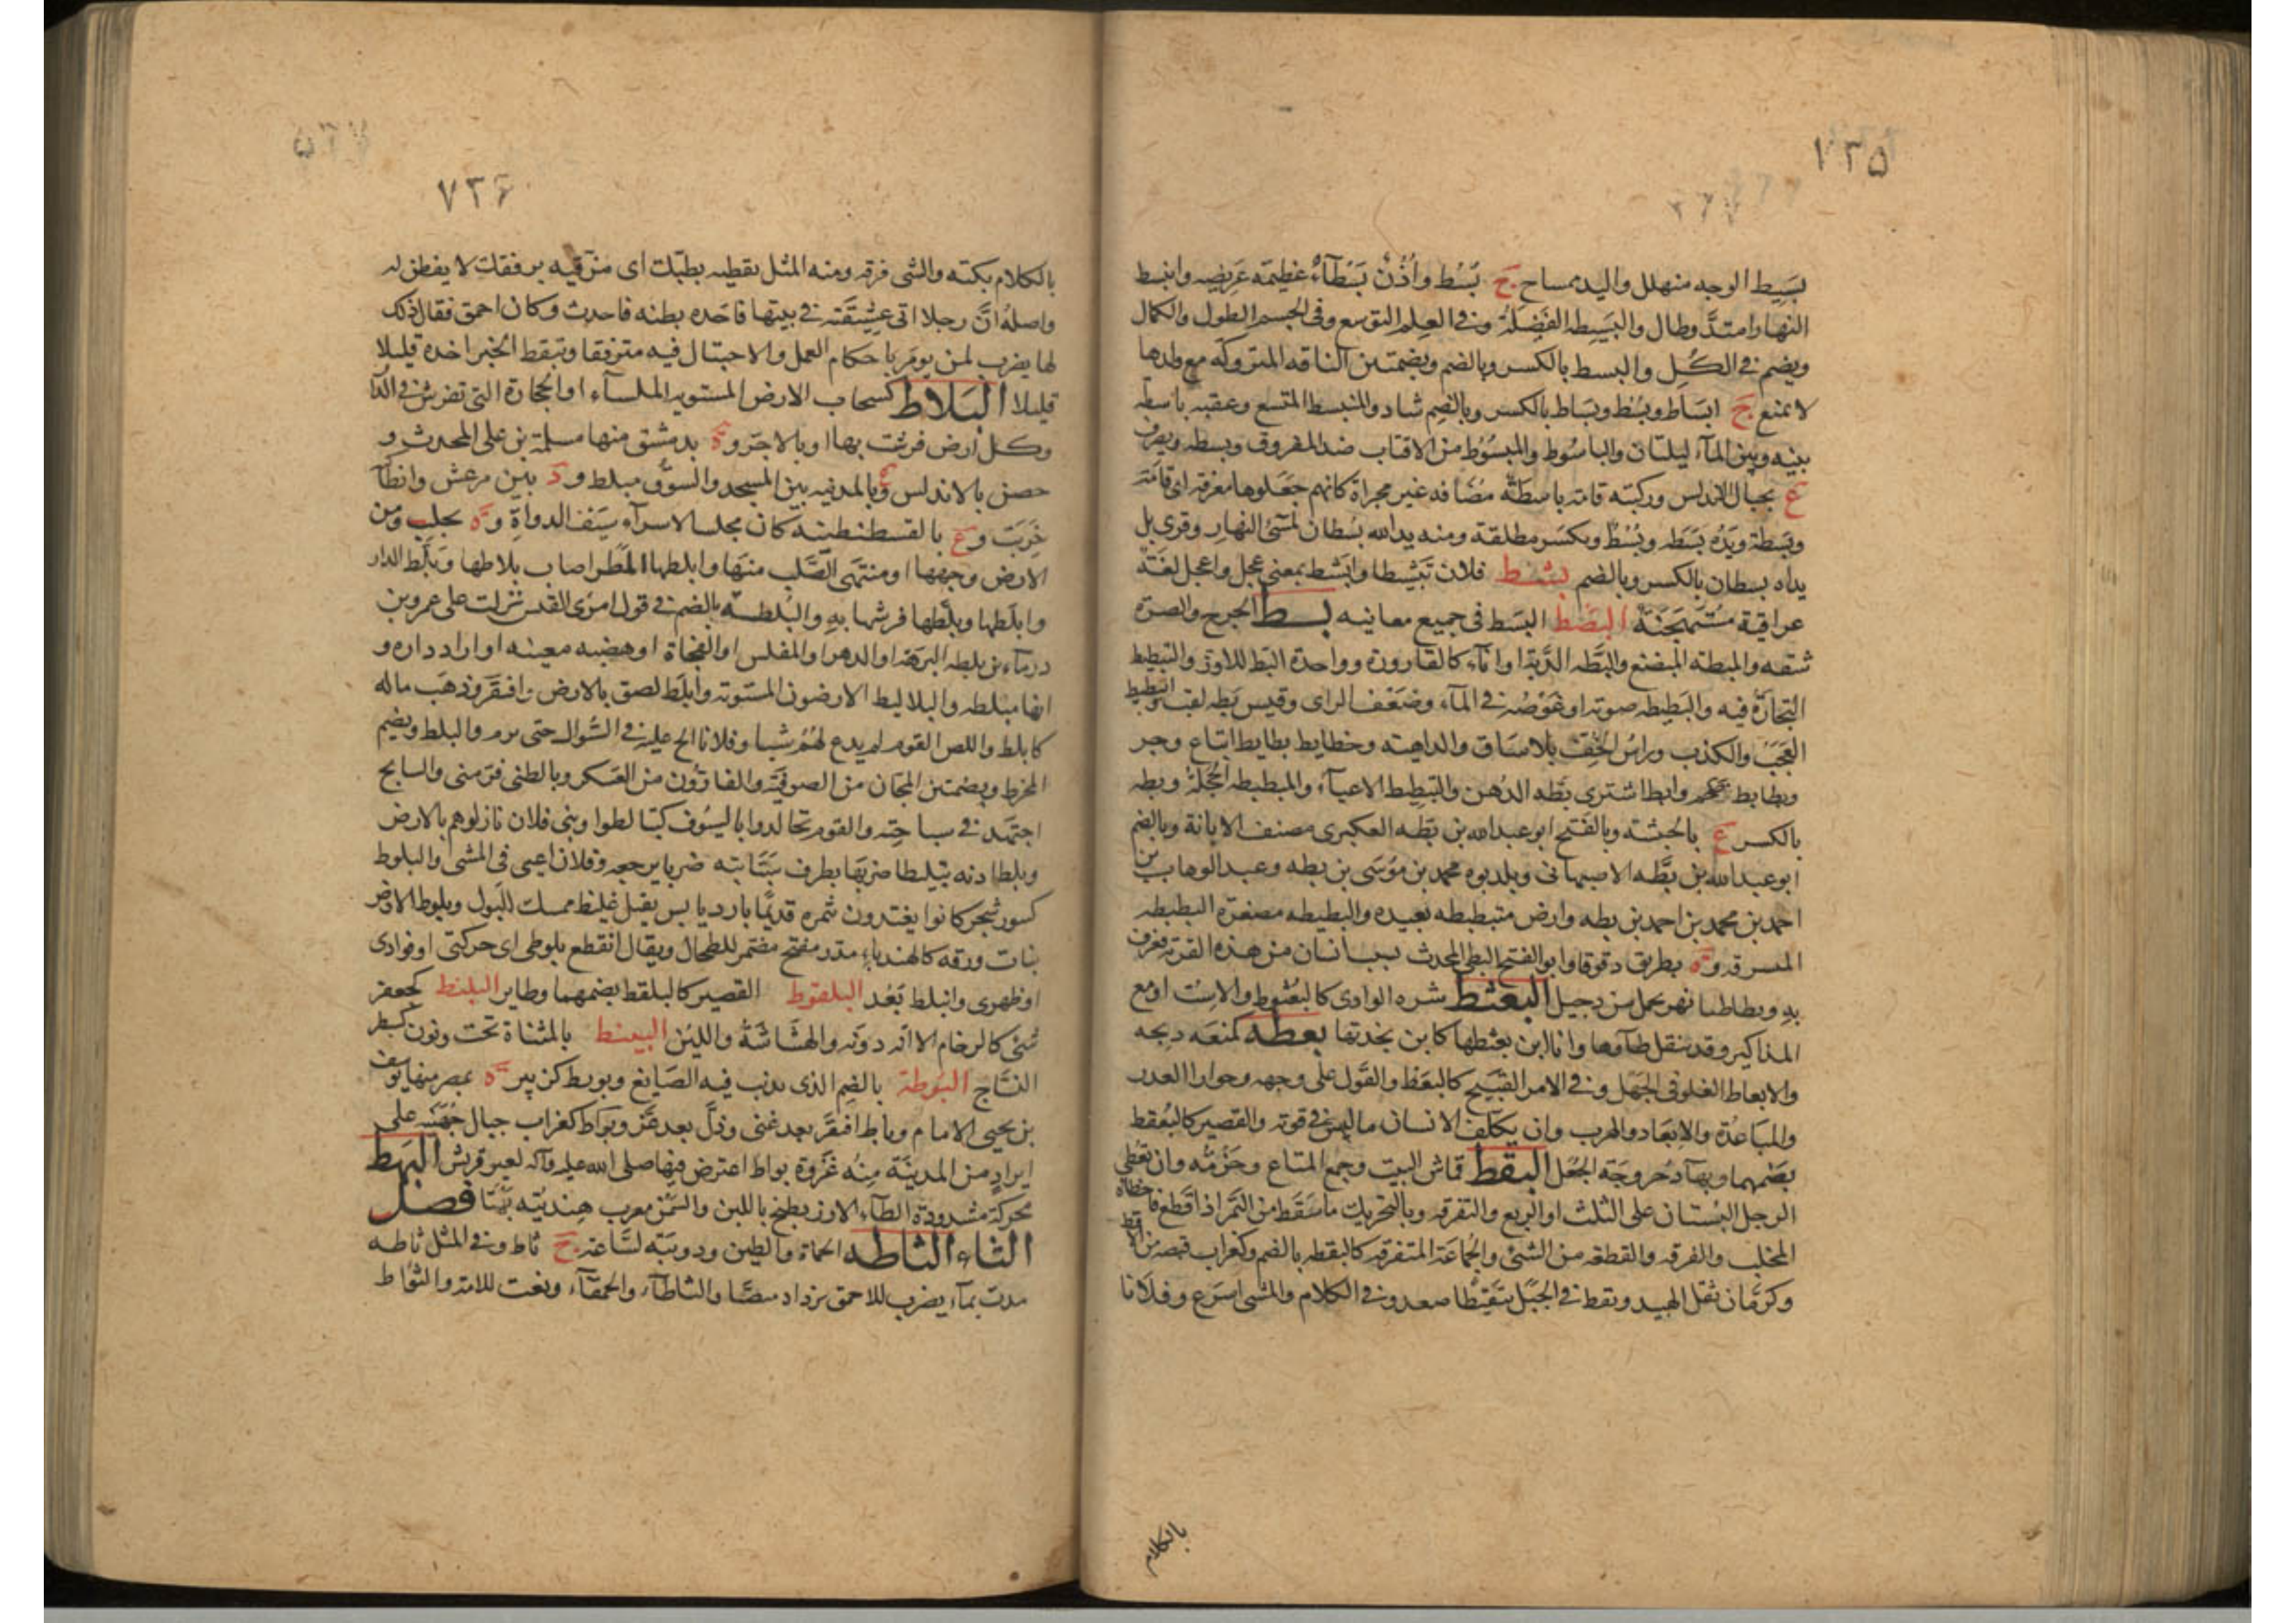 ١٣٥
بَسِيط الوجه منهلل واليد مساح ج بُسُط وأُذُنٌ بَسْطَآءُ عظيمَة عَرِيضه وانبسط
النهار امتدَّ وطال والبَسِيطه الفَضِيلَةُ وفى العِلم التوسع وفى الجسم الطول والكمال
ويضم فى الكُلِ والبسط بالكسر وبالضم وبضمتين الناقه المتروكَه مع ولدها
لا تمنع ج ابسَاط وبُسْط وبسَاط بالكسر وبالضم شاد والمنبسط المتسع وعقبه باسطه
بينه وبين المآء ليلتان والباسُوط والمبسُوط من الاقتاب ضد المفروق وبسطه ويصرف
ع بجبال الاندلس وركبته قامَة باسطَةٌ مضافه غير مجراة كانهم جعَلوها معرفة اى قامَة
وبَسطة ويَدُه بَسَطه وبُسْطٌ وبكسر مطلقة ومنه يد الله بسُطان لمسئ النهار وقرى بل
يداه بسطان بالكسر وبالضم بشط فلان تبشيطا وابشط بمعنى عجل واعجل لغَة
عراقية مُستهجَنَةٌ البَصط البَسط فى جميع معانيه بط الجرح والصرّه
شقه والمبطه المبضع والبَطَّه الدَّبة او انآء كالقارورة وواحدة البَط للاوز والتبطيط
التجارَةُ فيه والبَطِيطه صوته او غَوْصُه فى المآء وضعَف الراى وقيس بَطه لقب والبطيط
العَجَبُ والكذب وراسُ الخف بلا سَاق والداهية وخطايط بطايط اتباع وجر
وبطابط ضخم وابط اشترى بَطه الدُهن والتبطِيط الاعياء والمبطبطه الحجلة وبطه
بالكسر ع بالحبشه وبالفتح ابو عبد الله بن بَطه العكبرى مصنف الابانة وبالضم
ابو عبد الله بن بُطَّه الاصبهانى وبلديوه محمد بن موسَى بن بطه وعبد الوهاب بن
احمد بن محمد بن احمد بن بطه وارض متبطبطه بعيده والبطيطه مصغرة البطبطه
السرقه و ة بطريق دقوقا وابو الفتح البطى المحدث بسبب انسان من هذه القرية فعرف
به وبطاطيا نهر يحمل من دجيل البعثط سُره الوادى كالبعثوط والاست او مع
المذاكير وقد تنقل طآوها وانا ابن بعثطها كابن بجدتها بعطه كمنعَه ذبحه
والابعاط الغلو فى الجَهل وفى الامر القَبيح كالبعَط والقَول على وجهه وجواز العدر
والمباعدَة والابعَاد والهرب وان يكلّف الانسان ما ليس فى قوته والقصير كالبُعقط
بضمهما وبهآ دُحروجَة الجُعَل البقط قماش البيت وجمع المتاع وحَزمُه وان تعطى
الرجل البُستان على الثلث او الربع والتفرقه وبالتحريك ما سَقَط من التَمر اذا قطع فاخطاه
المخلب والفرقه والقطعه من الشئ والجمَاعَة المتفرقه كالبقطه بالضم وكغراب قبضه من الاقط
وكرمّان ثفل الهبيد وبقط فى الجَبل تبقيطا صعد وفى الكلام والمشى اسرَع وفلانا
بالكلام
٧٣٦
بالكلام بكته والشئ فرقه ومنه المثل بقطيه بطبّك اى فرّقيه برفقك لا يفطن له
واصلُه انَّ رجلا اتى عشيقَته فى بيتها فاخذه بطنه فاحدث وكان احمق فقال ذلك
لها يضرب لمن يومَر باحكام العمل والاحتيال فيه مترفقا وتبقط الخبر اخده قليلا
قليلا البَلاط كسحاب الارض المستويه الملسآء او الحجارة التى تفرش فى الدا
وكل ارض فرشت بها او بالاجر و ة بدمشق منها مسلمة بن على المحدث و
حصن بالاندلس و ع بالمدينه بين المسجد والسوق مبلط و د بين مرعش وانطآ
خَرِبَت و ع بالقسطنطنيه كان مجلسا لاسرآء سيف الدولة و ة بحلب ومن
الارض وجهها او منتهى الصّلب منهَا وابلطها المطر اصاب بلاطها وبَلَط الدار
وابلطها وبلّطها فرشها به والبُلطه بالضم فى قول امرئ القيس نزلت على عمرو بن
درمآء بن بلطه البرهة او الدهر او المفلس او الفجأة او هضبه معينه او اراد داره و
انها مبلطه والبلاليط الارضون المستويه وأبلَط لصق بالارض وافتقَر وذهَب ماله
كابلط واللص القوم لم يدع لهُم شيا وفلانا الح عليه فى السّوال حتى برم والبلط ويضم
المخرط وبضمتين المجّان من الصوفيَّة والفارّون من العَسكر وبالطنى فرّ منى والسابح
اجتَهد فى سباحته والقوم تجالدوا بالسيُوف كتبالطوا وبنى فلان نازلوهم بالارض
وبلط اذنه تبليطا ضربَها بطرف سَبَّابته ضربا يوجعه وفلان اعيى فى المشى والبلوط
كسور شجر كانوا يغتذون ثمره قديمًا بارد يابس ثقيل غليظ ممسك للبَول وبلوط الارض
نبات ورقه كالهندباء مدر مفتح مضمر للطحال ويقال انقطع بلوطى اى حركتى او فوادى
او ظهرى وانبلط بَعُد البلقوط القصير كالبلقط بضمهما وطاير البلنط كجعفر
شئ كالرخام الا انه دونه والهشاشَةُ واللين البينط بالمثناة تحت ونون كسبطر
النسّاج البوطة بالضم الذى يذيب فيه الصَايغ وبويط كزبير ة بمصر منها يوسف
بن يحيى الامام وباط افتقَر بعد غنى وذلّ بعد عزّ وبوَاط كغراب جبال جُهَينه على
ابرادٍ من المدينَة مِنهُ غزوة بواط اعترض فيها صلى الله عليه وآله لعير قريش البَهَط
محركة مشدودة الطآء الارز يطبخ باللبن والسّمن معرب هِنديّته بَهتَا فصل
الثاء الثاطه الحماة والطين ودويبَه لسَّاعة ج ثاط وفى المثل ثاطه
مدت بمآء يضرب للاحمق يزداد منصبَا والثاطآء والحمقآء ونعت للامة والثوَاط